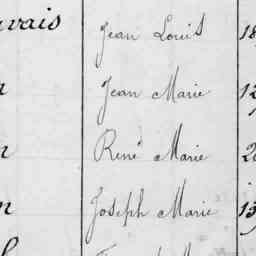 vais Jean Louis 18
Jean Marie 12
René Marie 2
Joseph Marie 13